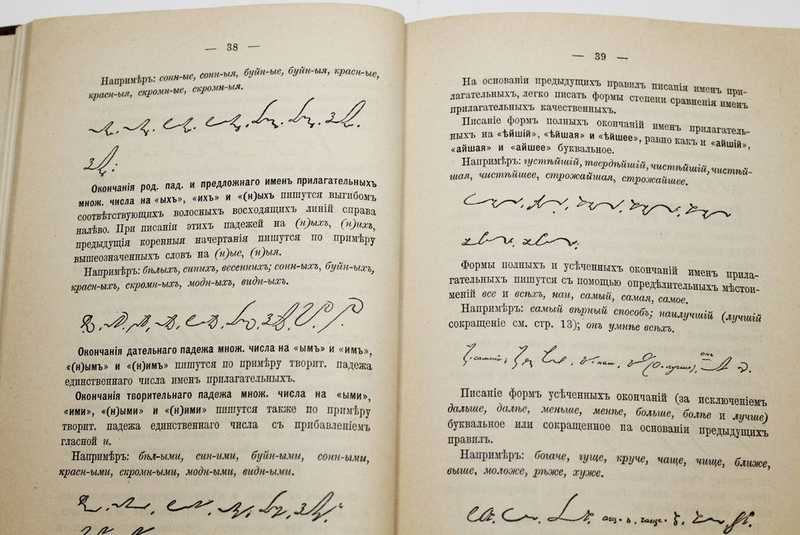 — 38 —
Напримѣръ: сонн-ые, сонн-ыя, буйн-ые, буйн-ыя, красн-ые,
красн-ыя, скромн-ые, скромн-ыя.
Окончанія род. пад. и предложнаго именъ прилагательныхъ
множ. числа на «ыхъ», «ихъ» и «(н)ыхъ пишутся выгибомъ
соотвѣтствующихъ волосныхъ восходящихъ линій справа
налѣво. При писаніи этихъ падежей на (н)ыхъ, (н)ихъ,
предыдущія коренныя начертанія пишутся по примѣру
вышеозначенныхъ словъ на (н)ые, (н)ыя.
Напримѣръ: бѣлыхъ, синихъ, весеннихъ; сонн-ыхъ, буйн-ыхъ,
красн-ыхъ, скромн-ыхъ, модн-ыхъ, видн-ыхъ.
Окончанія дательнаго падежа множ. числа на «ымъ» и «имъ»,
«(н)ымъ» и «(н)имъ» пишутся по примѣру творит. падежа
единственнаго числа именъ прилагательныхъ.
Окончанія творительнаго падежа множ. числа на «ыми»,
«ими», «(н)ыми» и «(н)ими» пишутся также по примѣру
творит. падежа единственнаго числа съ прибавленіемъ
гласной и.
Напримѣръ: бѣл-ыми, син-ими, буйн-ыми, сонн-ыми,
красн-ыми, скромн-ыми, модн-ыми, видн-ыми.
— 39 —
На основаніи предыдущихъ правилъ писанія именъ при-
лагательныхъ, легко писать формы степени сравненія именъ
прилагательныхъ качественныхъ.
Писаніе формъ полныхъ окончаній именъ прилагатель-
ныхъ на «ѣйшій», «ѣйшая» и «ѣйшее», равно какъ и «айшій»,
«айшая» и «айшее» буквальное.
Напримѣръ: густѣйшій, твердѣйшій, чистѣйшій, чистѣй-
шая, чистѣйшее, строжайшая, строжайшее.
Формы полныхъ и усѣченныхъ окончаній именъ прила-
гательныхъ пишутся съ помощью опредѣлительныхъ мѣстои-
меній все и всѣхъ, наи, самый, самая, самое.
Напримѣръ: самый вѣрный способъ; наилучшій (лучшій
сокращеніе см. стр. 13); онъ умнѣе всѣхъ.
Писаніе формъ усѣченныхъ окончаній (за исключеніемъ
дальше, далѣе, меньше, менѣе, больше, болѣе и лучше)
буквальное или сокращенное на основаніи предыдущихъ
правилъ.
Напримѣръ: богаче, гуще, круче, чаще, чище, ближе,
выше, моложе, рѣже, хуже.